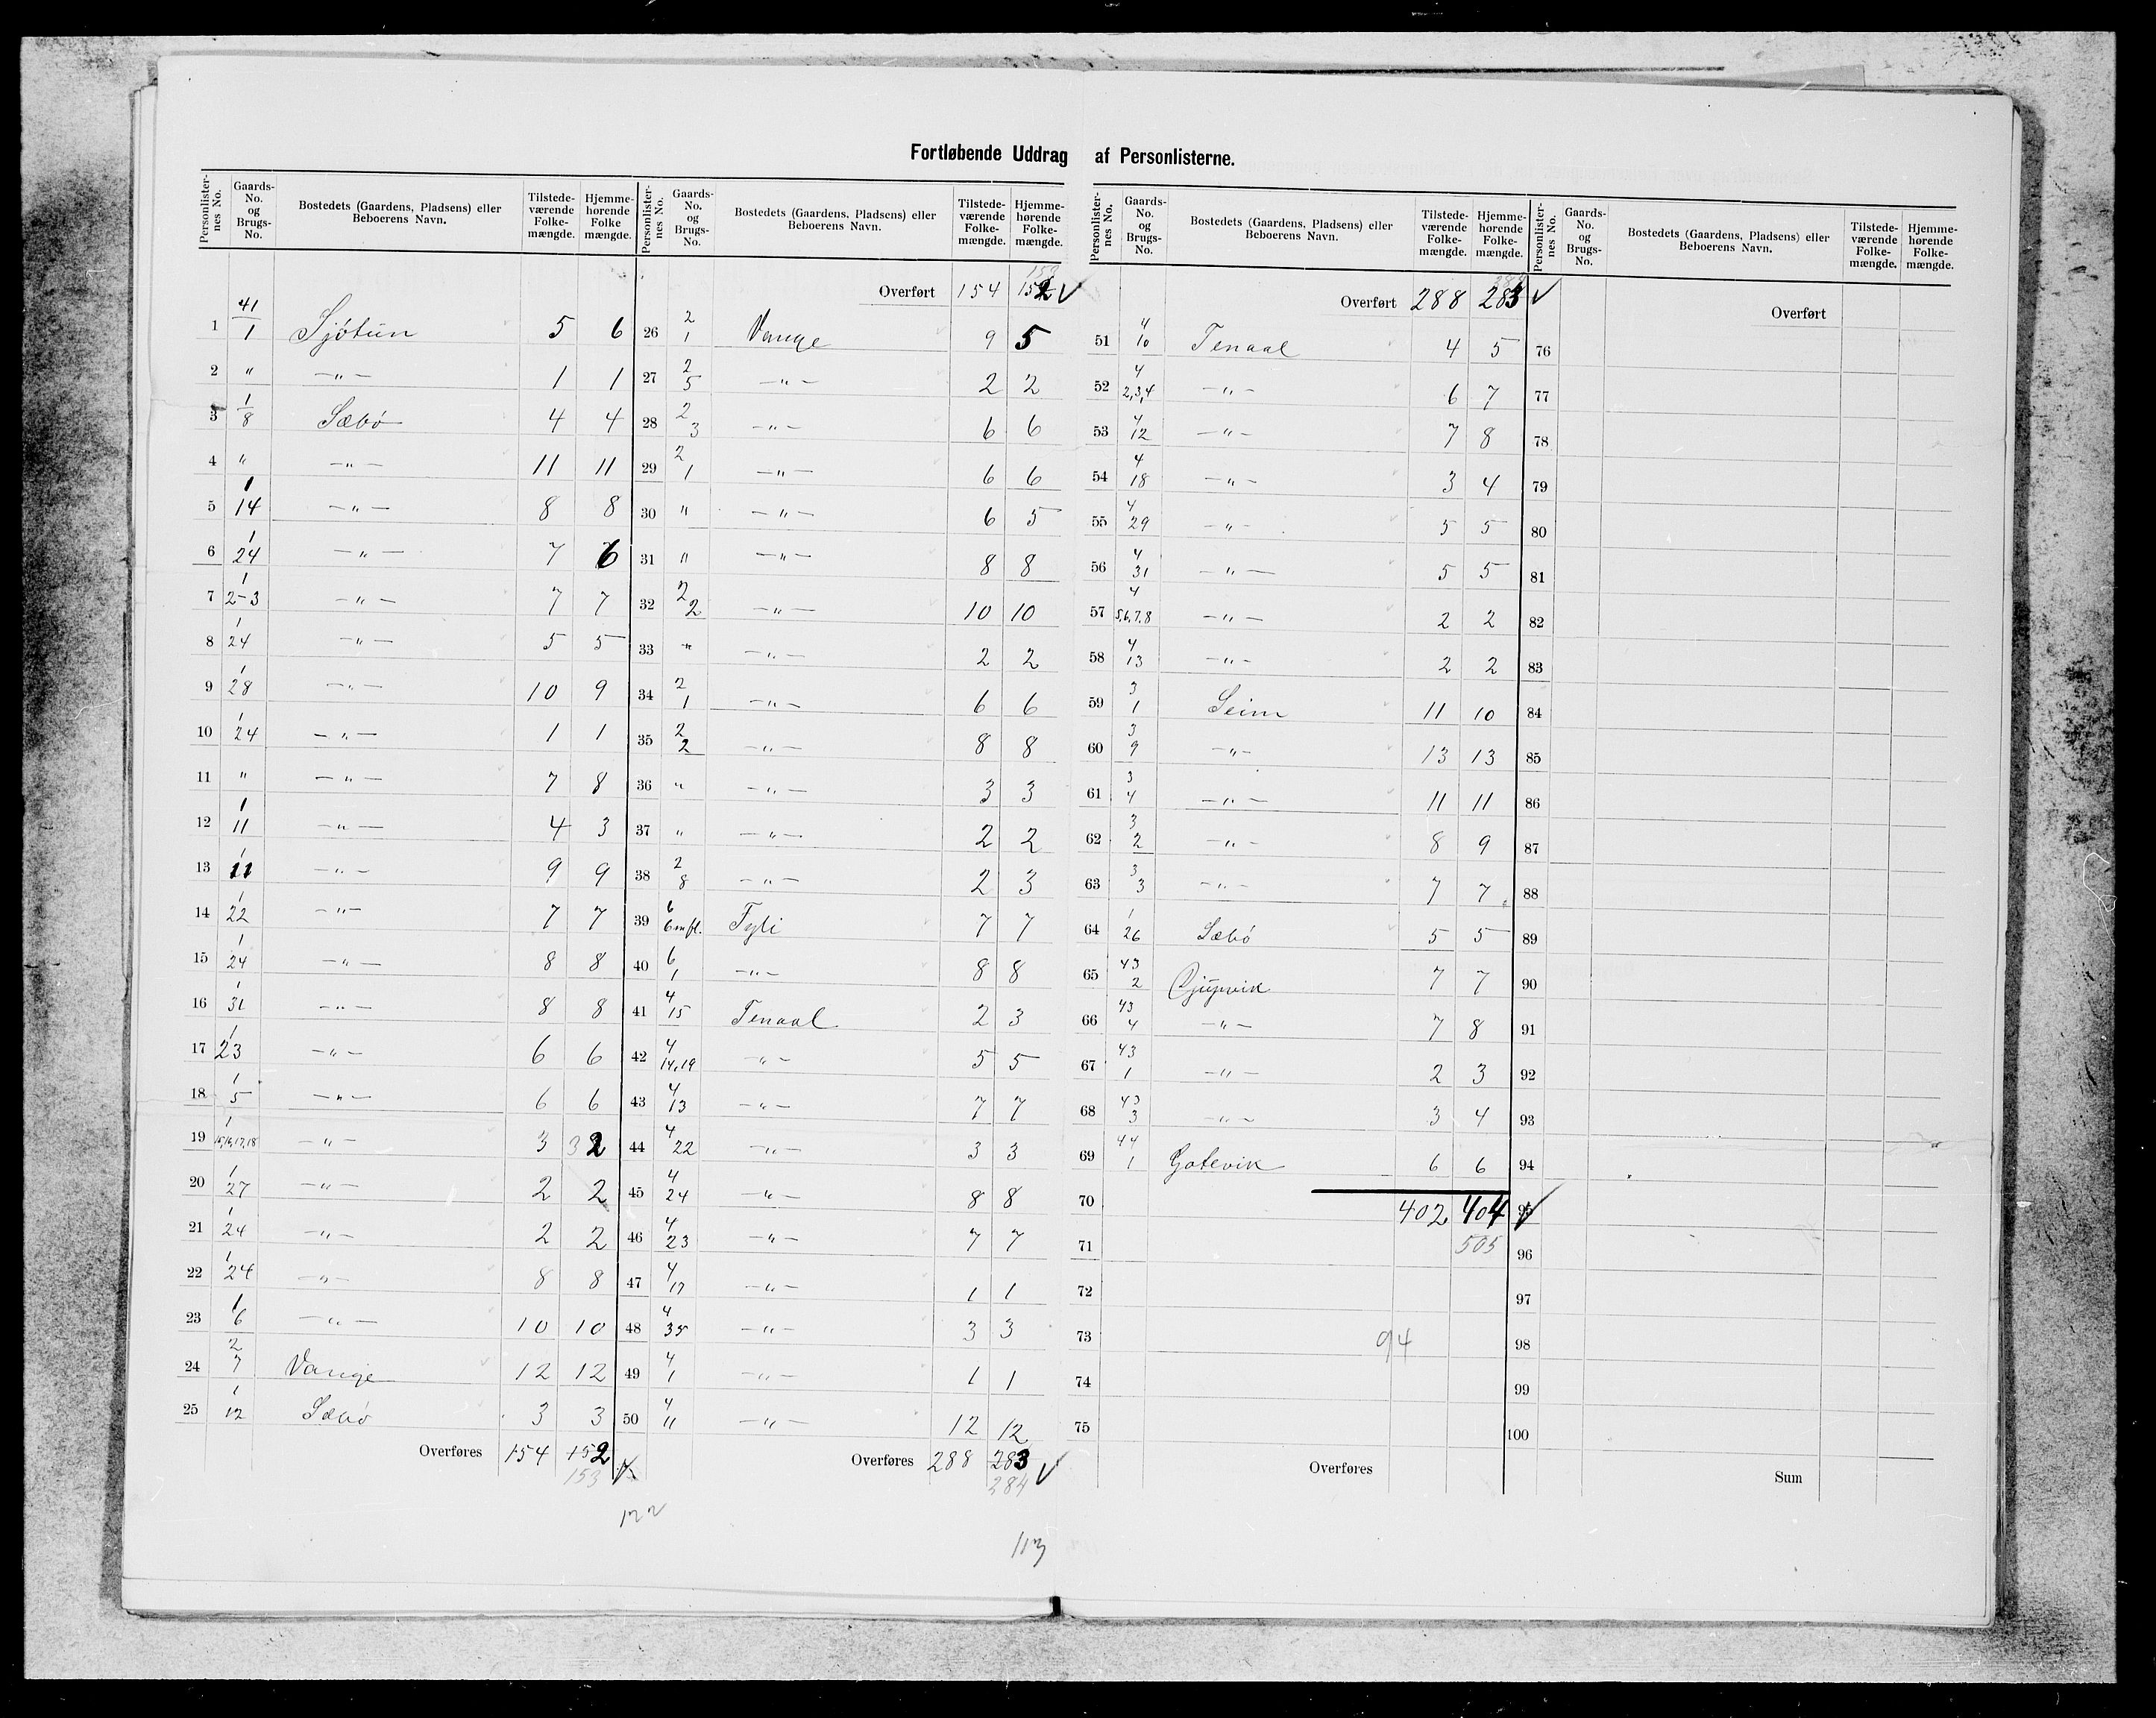 Fortløbende Uddrag af Personlisterne.
Personlisternes No. Gaards-No. og Brugs-No. Bostedets (Gaardens, Pladsens) eller Beboerens Navn. Tilstedeværende Folkemængde. Hjemmehørende Folke mængde.
1 41/1 Sjötun 5 6
2 " —"— 1 1
3 1/8 Sæbö 4 4
4 " —"— 11 11
5 1/14 —"— 8 8
6 1/24 —"— 7 6
7 1/2-3 —"— 7 7
8 1/24 —"— 5 5
9 1/28 —"— 10 9
10 1/24 —"— 1 1
11 " —"— 7 8
12 1/11 —"— 4 3
13 1/11 —"— 9 9
14 1/22 —"— 7 7
15 1/24 —"— 8 8
16 1/31 —"— 8 8
17 1/23 —"— 6 6
18 1/5 —"— 6 6
19 1/15,16,17,18 —"— 3 3 2
20 1/27 —"— 2 2
21 1/24 —"— 2 2
22 1/24 —"— 8 8
23 1/6 —"— 10 10
24 2/7 Vange 12 12
25 1/12 Sæbö 3 3
Overføres 154 152 ✓
153
122
Personlisternes No. Gaards-No. og Brugs-No. Bostedets (Gaardens, Pladsens) eller Beboerens Navn. Tilstedeværende Folkemængde. Hjemmehørende Folkemængde.
153
Overført 154 152 ✓
26 2/1 Vange 9 5
27 2/5 —"— 2 2
28 2/3 —"— 6 6
29 2/1 —"— 6 6
30 " —"— 6 5
31 " —"— 8 8
32 2/2 —"— 10 10
33 " —"— 2 2
34 2/1 —"— 6 6
35 2/2 —"— 8 8
36 " —"— 3 3
37 " —"— 2 2
38 2/8 —"— 2 3
39 6/6 mfl. Fyli 7 7
40 6/1 —"— 8 8
41 4/15 Tenaal 2 3
42 4/14,19 —"— 5 5
43 4/13 —"— 7 7
44 4/22 —"— 3 3
45 4/24 —"— 8 8
46 4/23 —"— 7 7
47 4/17 —"— 1 1
48 4/35 —"— 3 3
49 4/1 —"— 1 1
50 4/11 —"— 12 12
Overføres 288 283 ✓
284
113
Personlisternes No. Gaards-No. og Brugs-No. Bostedets (Gaardens, Pladsens) eller Beboerens Navn. Tilstedeværende Folkemængde. Hjemmehørende Folkemængde.
284
Overført 288 283 ✓
51 4/10 Tenaal 4 5
52 4/2,3,4 —"— 6 7
53 4/12 —"— 7 8
54 4/18 —"— 3 4
55 4/29 —"— 5 5
56 4/31 —"— 5 5
57 4/5,6,7,8 —"— 2 2
58 4/13 —"— 2 2
59 3/1 Seim 11 10
60 3/9 —"— 13 13
61 3/4 —"— 11 11
62 3/2 —"— 8 9
63 3/3 —"— 7 7
64 1/26 Sæbö 5 5
65 43/2 Djupvik 7 7
66 43/4 —"— 7 8
67 43/1 —"— 2 3
68 43/3 —"— 3 4
69 44/1 Gotevik 6 6
70 402 404 ✓
71 505
72
73 94
74
75
Overføres
Personlisternes No. Gaards-No. og Brugs-No. Bostedets (Gaardens, Pladsens) eller Beboerens Navn. Tilstedeværende Folkemængde. Hjemmehørende Folkemængde.
Overført
76
77
78
79
80
81
82
83
84
85
86
87
88
89
90
91
92
93
94
95
96
97
98
99
100
Sum